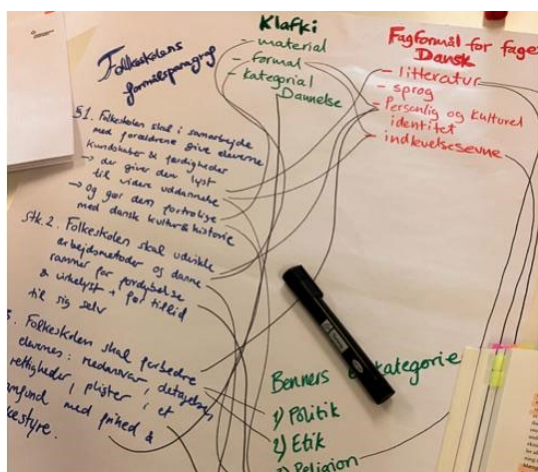 Folkeskolens
formålsparagraf
§1. Folkeskolen skal i samarbejde
med forældrene give eleverne
kundskaber & færdigheder
→ der giver dem lyst
til videre uddannelse
→ og gør dem fortrolige
med dansk kultur & historie
Stk. 2. Folkeskolen skal udvikle
arbejdsmetoder og danne
rammer for fordybelse
& virkelyst + får tillid
til sig selv
Folkeskolen skal forberede
elevernes: medansvar, deltagelse,
rettigheder, pligter i et
mfund med frihed &
kestyre.
Klafki
- material
- formal
- kategorial
Dannelse
Fagformål for faget
Dansk
- litteratur
- sprog
- Personlig og kulturel
identitet
- indlevelsesevne
Benners
kategorie
1) Politik
2) Etik
Religion